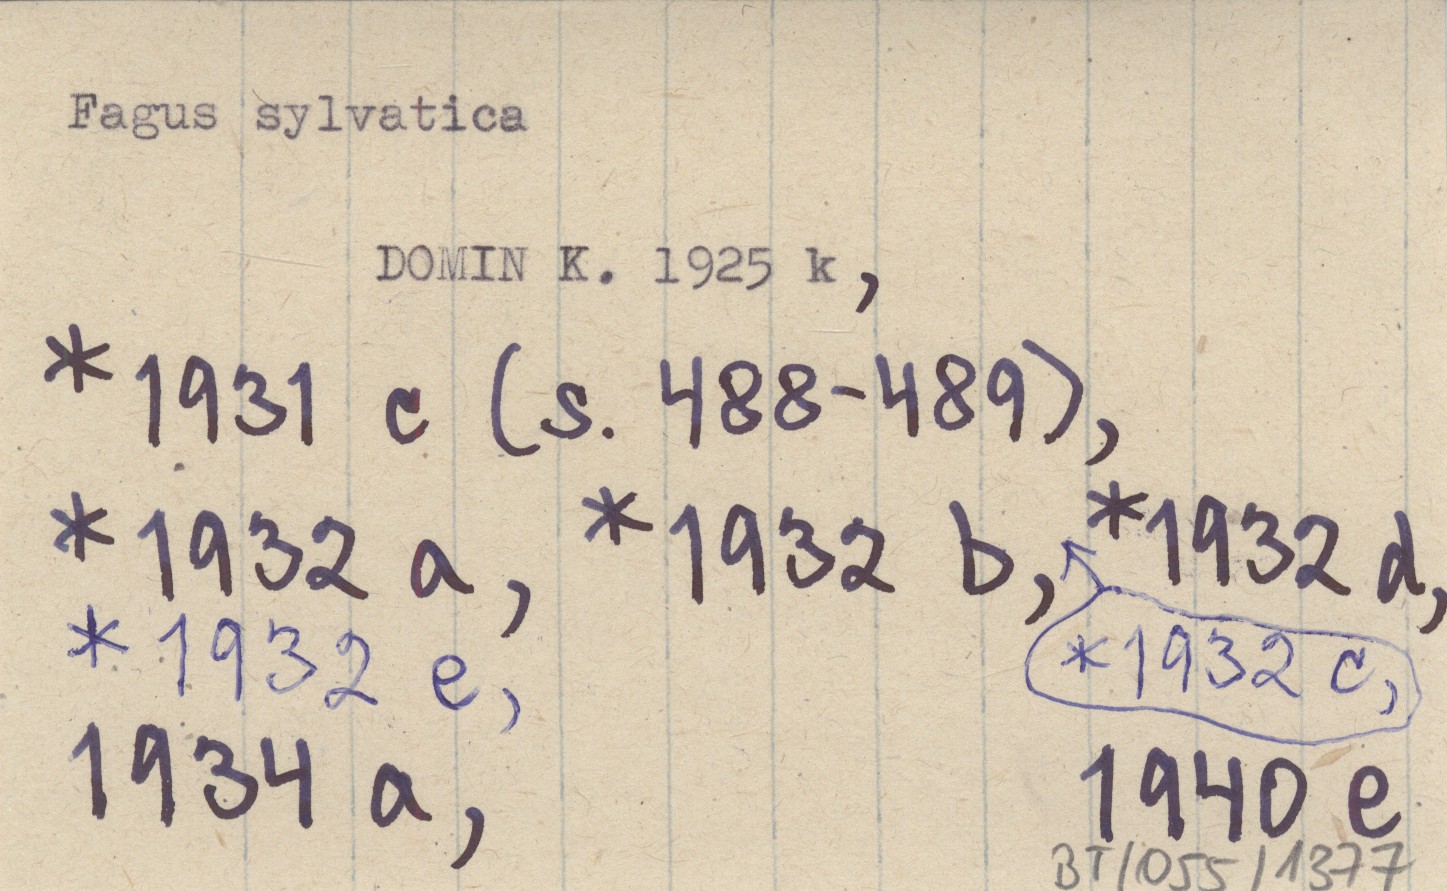 Fagus sylvatica
DOMIN K. 1925 k,
*1931 c (s. 488-489),
*1932 a, *1932 b, *1932 d,
*1932 e, *1932 c,
1934 a, 1940 e
BT/055/1377